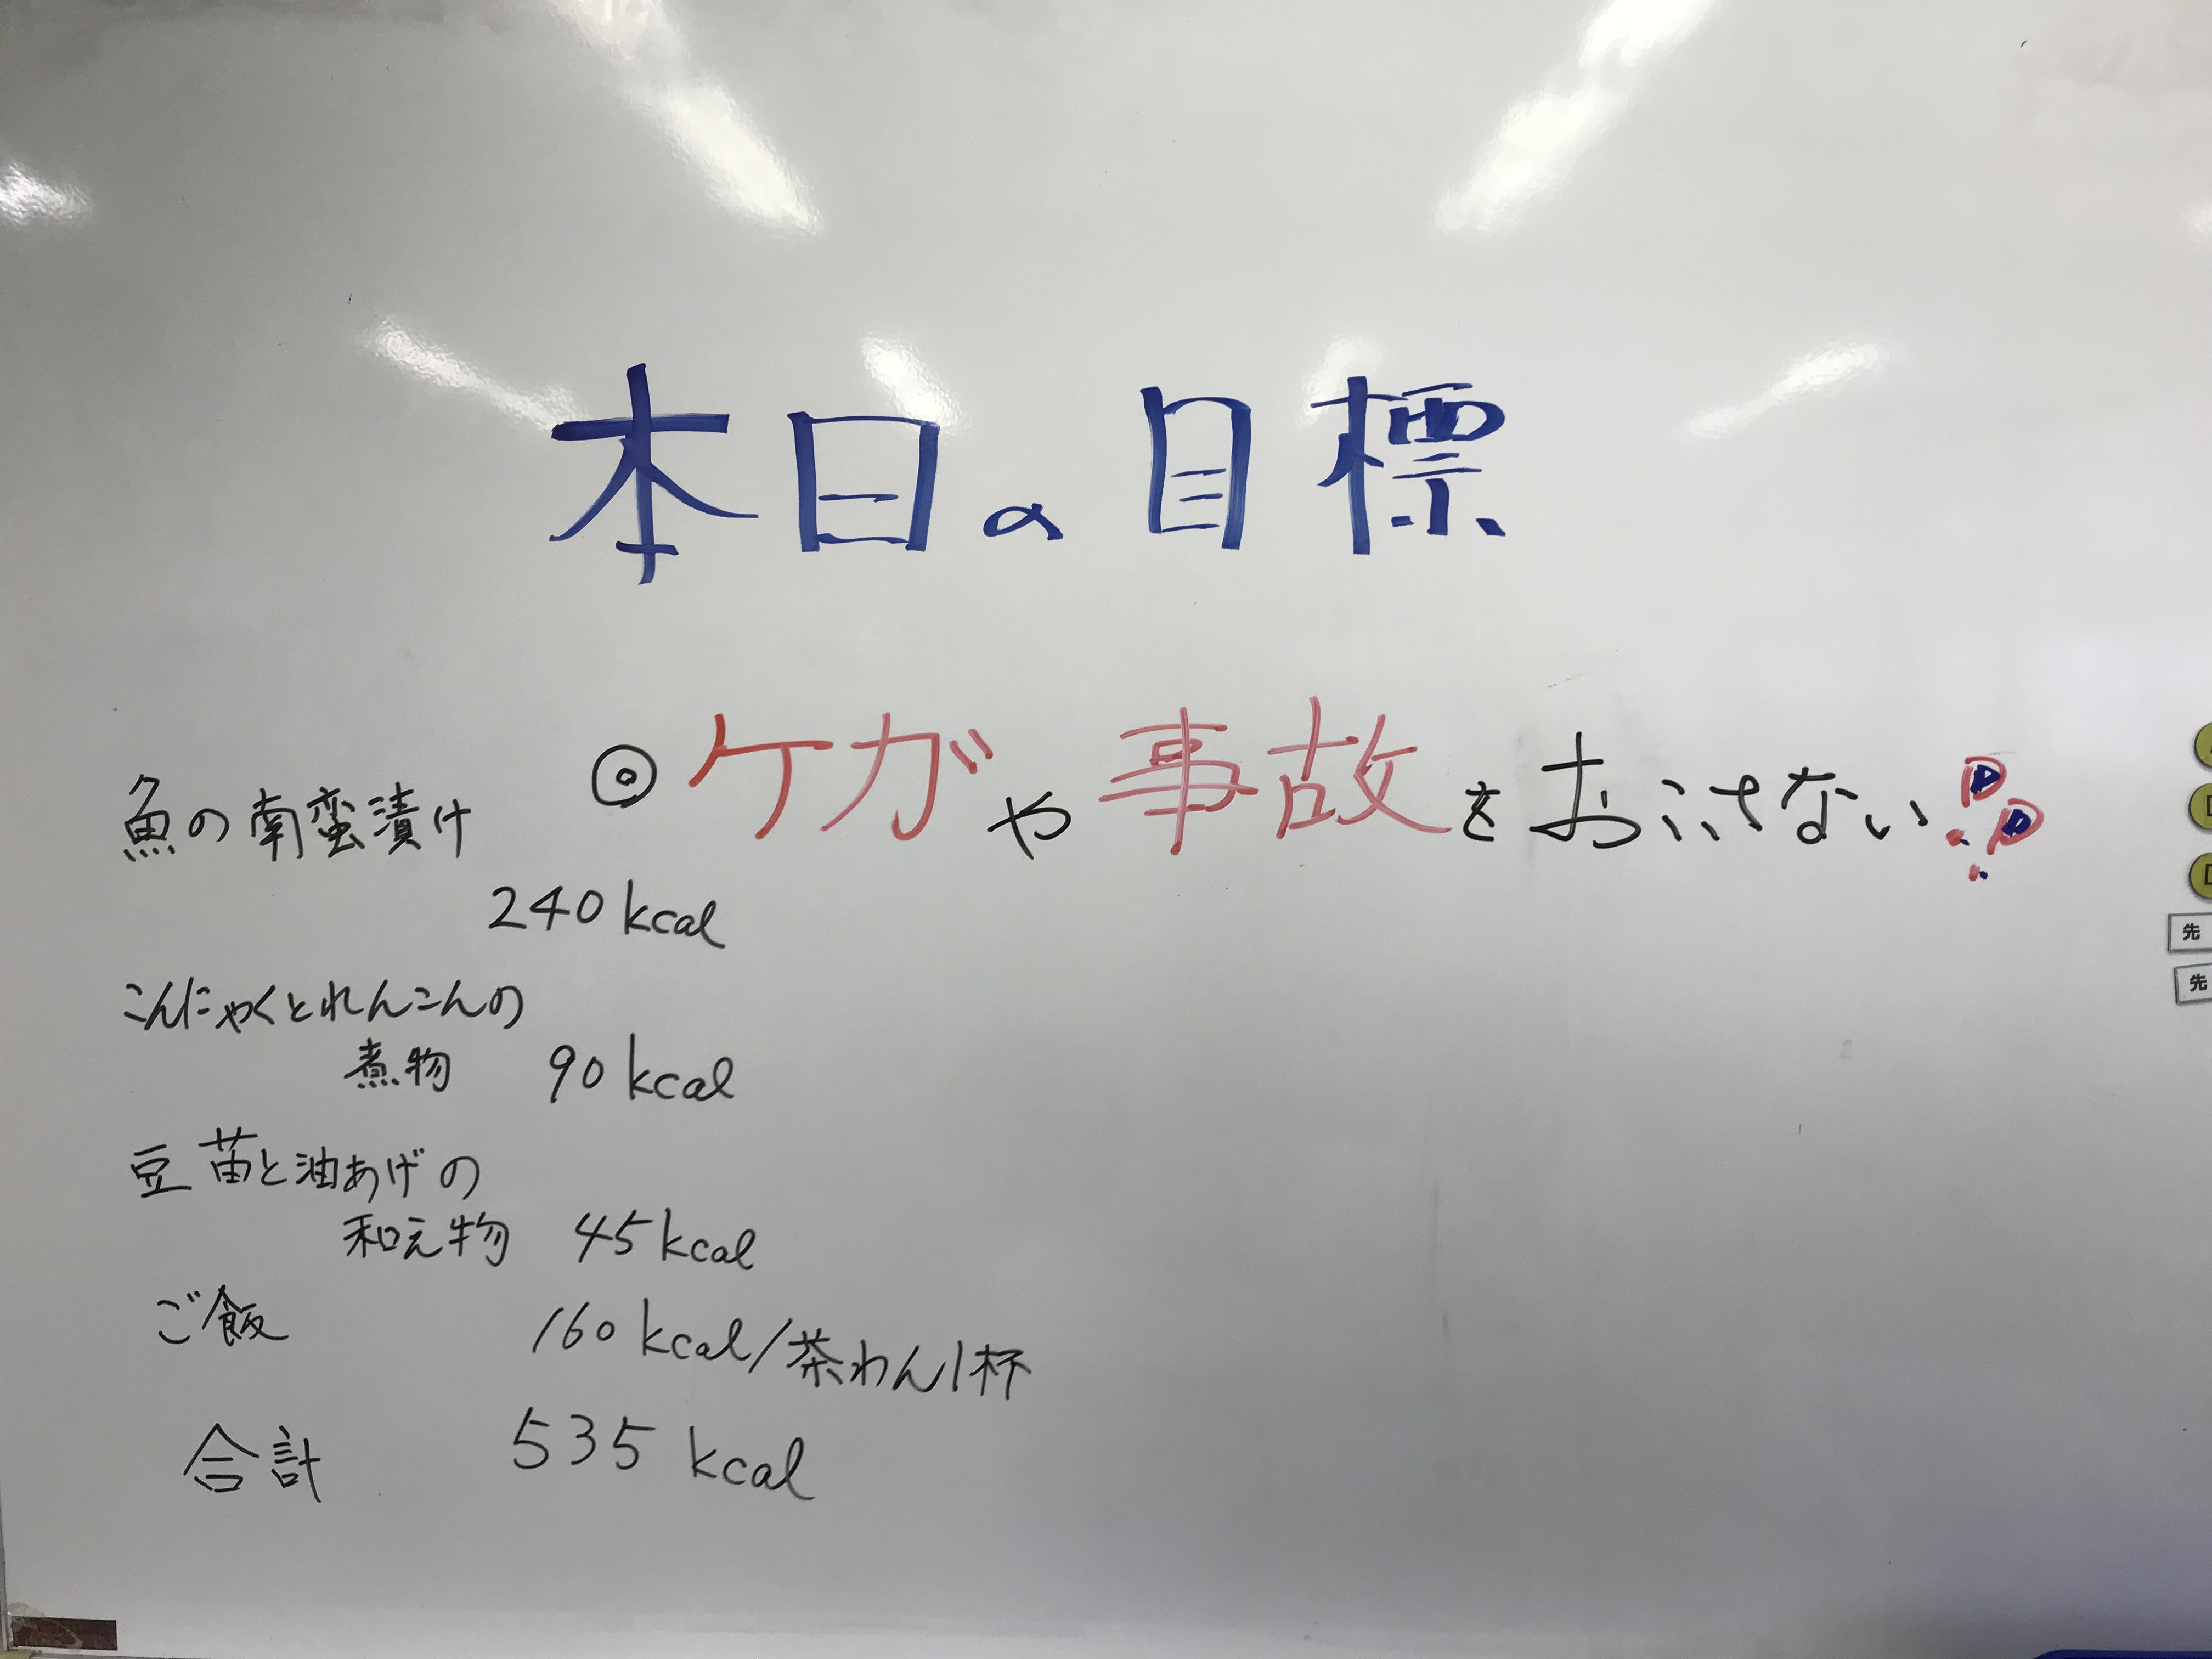 本日の目標
◎ケガや事故をおこさない!!
魚の南蛮漬け
240kcal
こんにゃくとれんこんの
煮物 90kcal
豆苗と油あげの
和え物 45kcal
ご飯 160kcal/茶わん1杯
合計 535kcal
先
先